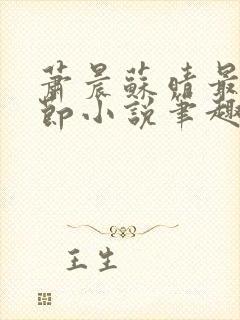 蕭晨蘇晴最
節小說筆趣
王生